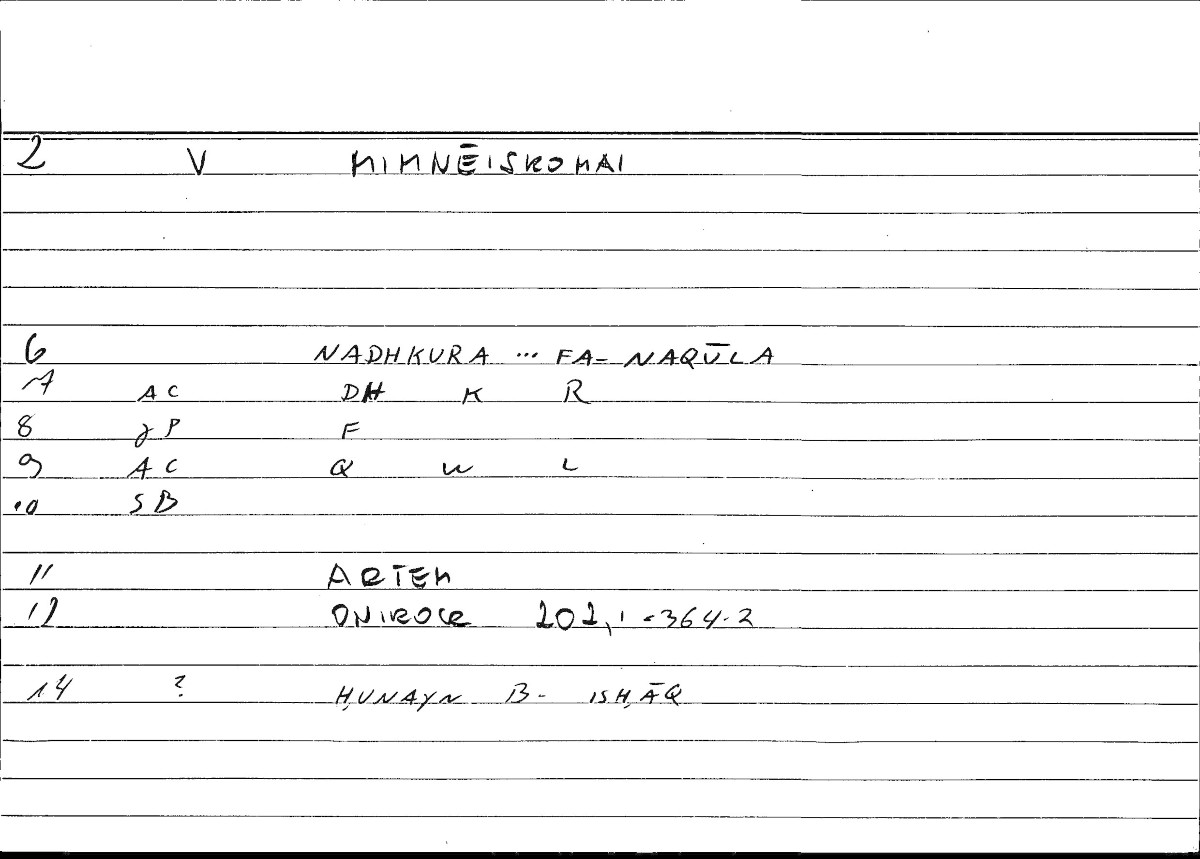 2 V MIMNĒISKOMAI
6 NADHKURA ... FA- NAQŪLA
7 AC DH K R
8 γP F
9 AC Q W L
10 SB
11 ARTEM
12 ONIROCR 202,1-364-2
14 ? ḤUNAYN B- ISḤĀQ